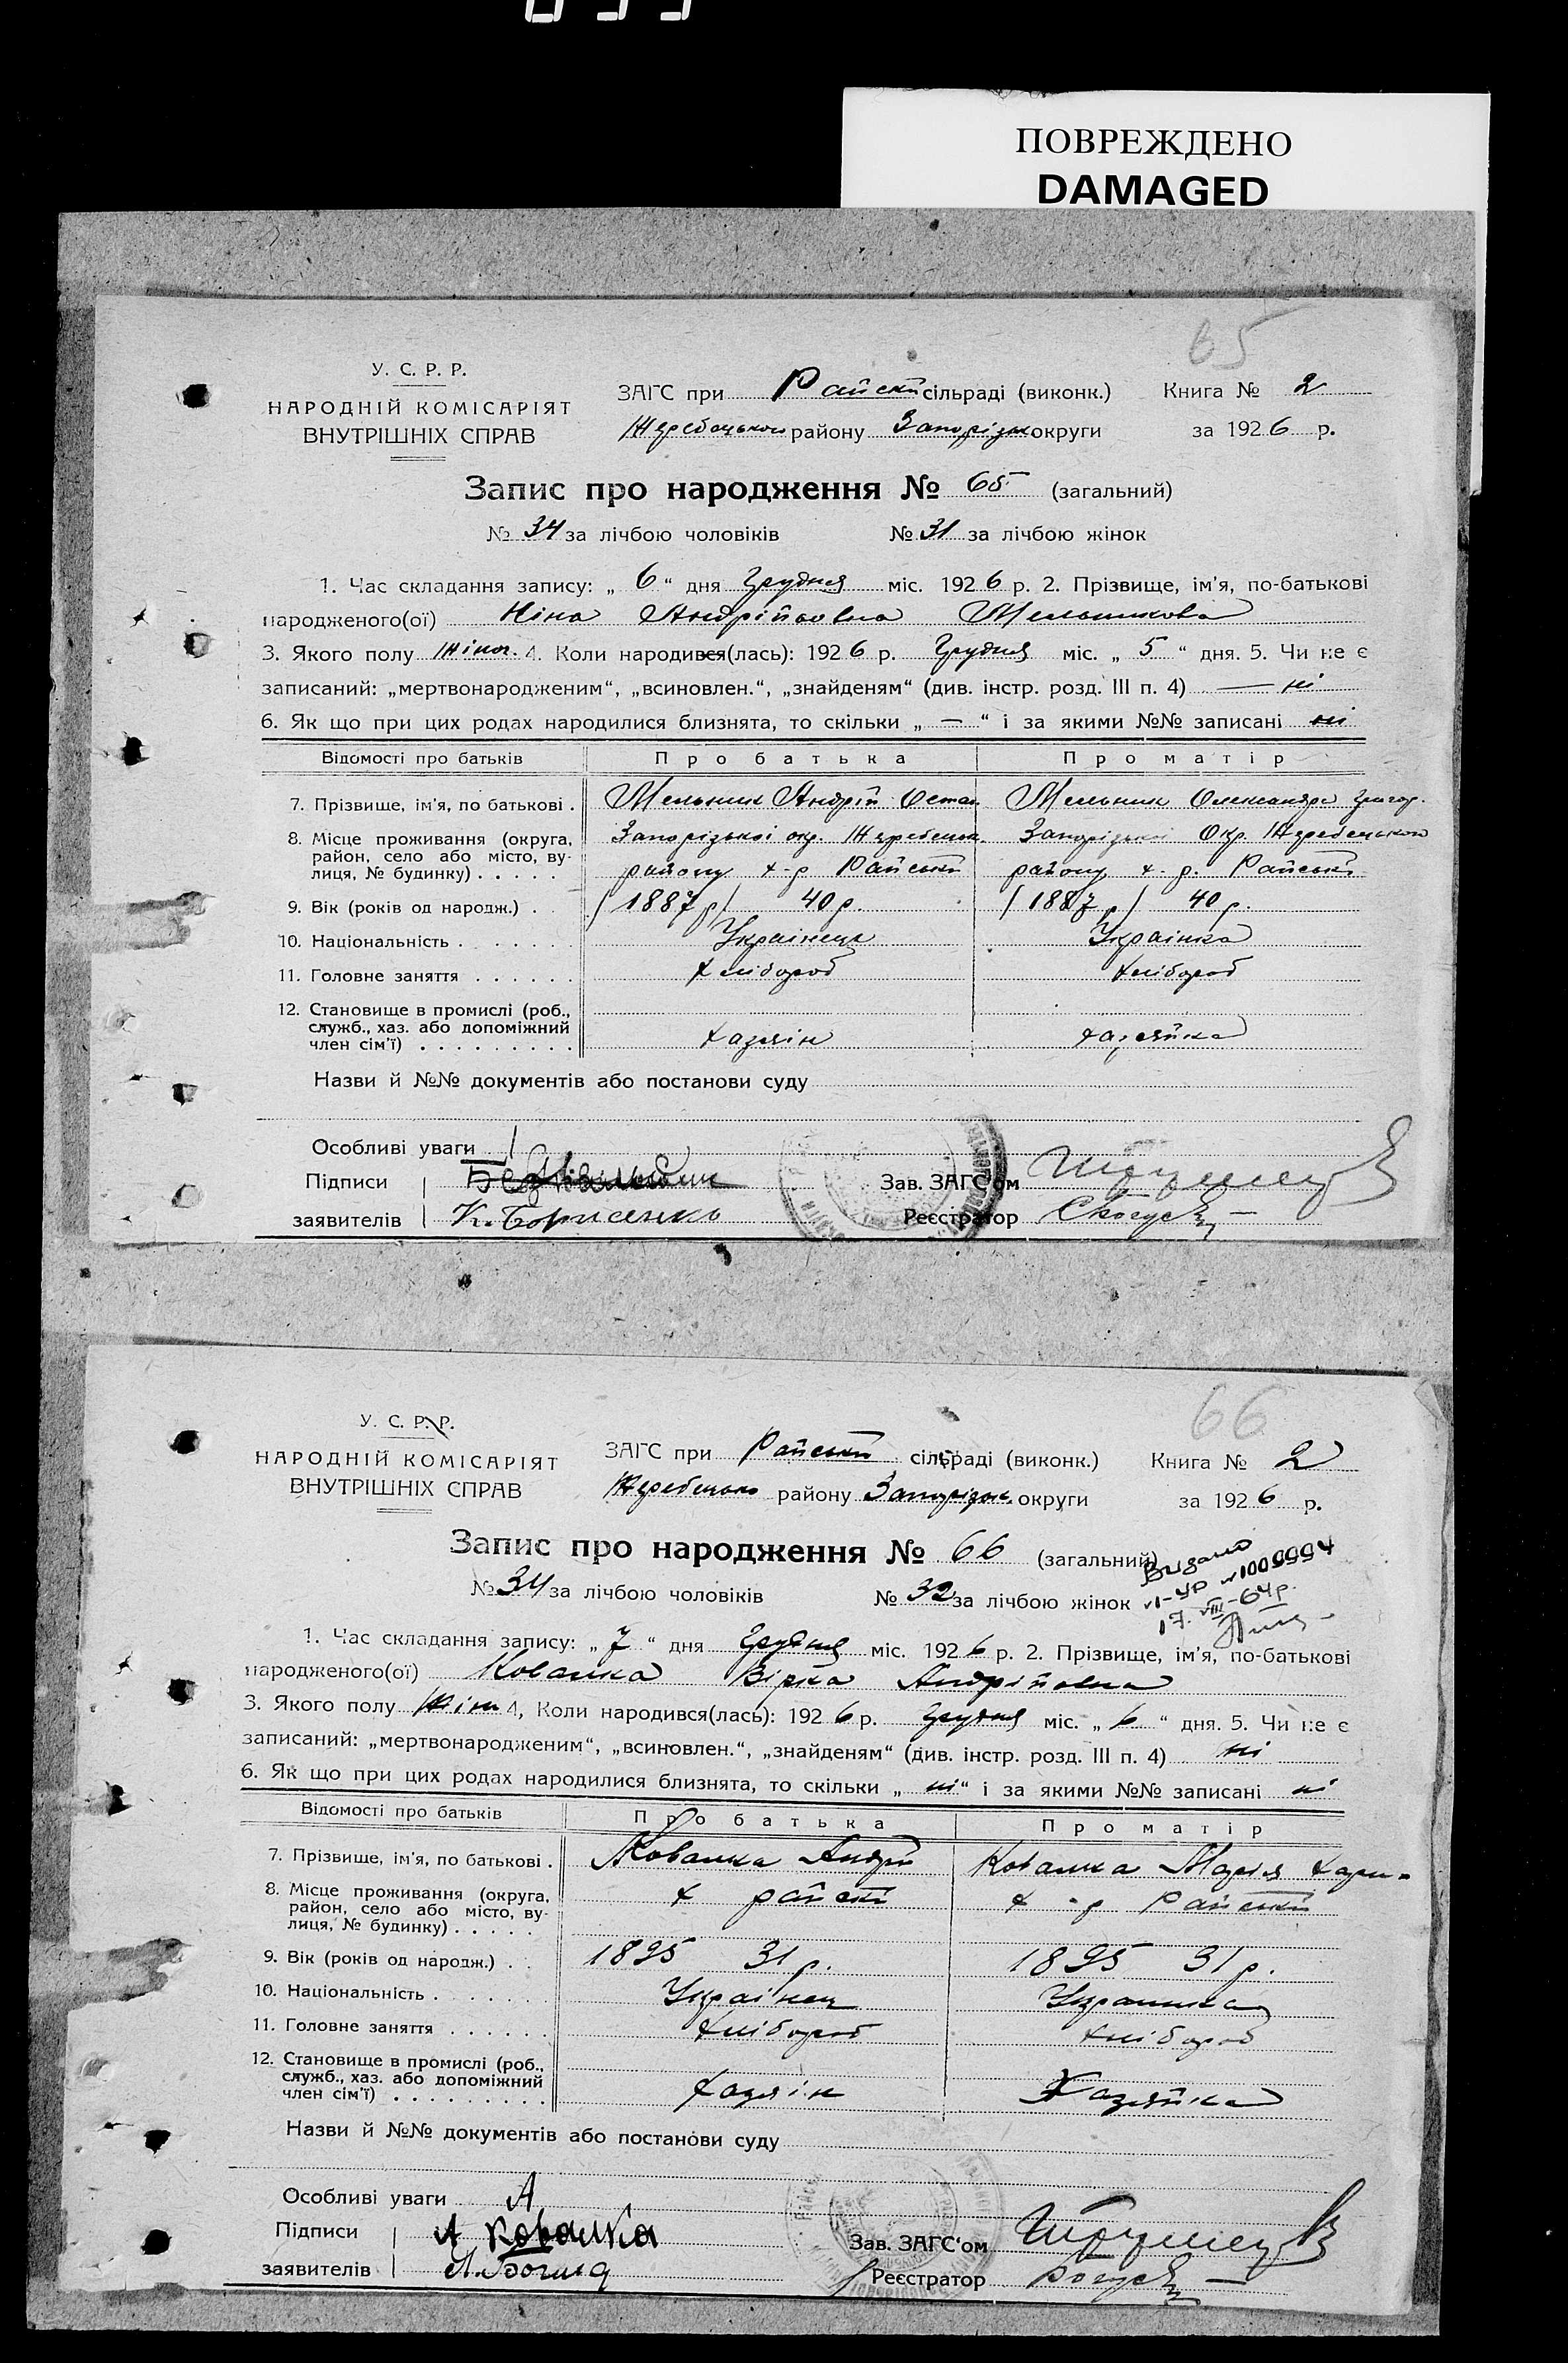 ПОВРЕЖДЕНО
DAMAGED
65
У. С. Р. Р.
НАРОДНІЙ КОМІСАРІЯТ
ВНУТРІШНІХ СПРАВ
ЗАГС при Райській сільраді (виконк.) Книга № 2
Жеребецького району Запорізьк округи за 1926 р.
Запис про народження № 65 (загальний)
№ 34 за лічбою чоловіків № 31 за лічбою жінок
1. Час складання запису: „ 6 “ дня Грудня міс. 1926 р. 2. Прізвище, ім'я, по-батькові
народженого(ої) Ніна Андрійовна Мельникова
3. Якого полу Жіноч. 4. Коли народився(лась): 1926 р. Грудня міс. „ 5 “ дня. 5. Чи не є
записаний: „мертвонародженим“, „всиновлен.“, „знайденям“ (див. інстр. розд. III п. 4) — ні
6. Як що при цих родах народилися близнята, то скільки „ — “ і за якими №№ записані ні
Відомості про батьків Про батька Про матір
7. Прізвище, ім'я, по батькові . Мельник Андрій Остап Мельник Олександра Григор.
8. Місце проживання (округа, район, село або місто, вулиця, № будинку) . . . . . Запорізької окр. Жеребецьк. Запорізької Окр. Жеребецького
району х-р Райський району х-р. Райський
9. Вік (років од народж.) . /1887 р/ 40 р. /1887 р/ 40 р.
10. Національність . . . . . . . Українець Українка
11. Головне заняття . . . . . . Хлібороб Хлібороб
12. Становище в промислі (роб., служб., хаз. або допоміжний член сім'ї) . . . . . . . . . Хазяін Хазяйка
Назви й №№ документів або постанови суду
Особливі уваги
Підписи
заявителів К. Борисенко
Зав. ЗАГС'ом
Реєстратор
66
У. С. Р. Р.
НАРОДНІЙ КОМІСАРІЯТ
ВНУТРІШНІХ СПРАВ
ЗАГС при Райській сільраді (виконк.) Книга № 2
Жеребецько району Запорізьк. округи за 1926 р.
Запис про народження № 66 (загальний)
Видано
VI-ЧР № 1009994
17. VIII-64р.
№ 34 за лічбою чоловіків № 32 за лічбою жінок
1. Час складання запису: „ 7 “ дня Грудня міс. 1926 р. 2. Прізвище, ім'я, по-батькові
народженого(ої) Ковалка Вірка Андрійовна
3. Якого полу Жіноч 4, Коли народився(лась): 1926 р. Грудня міс. „ 6 “ дня. 5. Чи не є
записаний: „мертвонародженим“, „всиновлен.“, „знайденям“ (див. інстр. розд. III п. 4) ні
6. Як що при цих родах народилися близнята, то скільки „ ні “ і за якими №№ записані ні
Відомості про батьків Про батька Про матір
7. Прізвище, ім'я, по батькові . Ковалка Андрій Ковалка Марія Хари-
8. Місце проживання (округа, район, село або місто, вулиця, № будинку) . . . . . х райскі х-р Райський
9. Вік (років од народж.) . . 1895 31 р. 1895 31 р.
10. Національність . . . . . . . Українец Украинка
11. Головне заняття . . . . . . Хлібороб Хлібороб
12. Становище в промислі (роб., служб., хаз. або допоміжний член сім'ї) . . . . . . . . Хазяін Хазяйка
Назви й №№ документів або постанови суду
Особливі уваги А
Підписи А Ковалка
заявителів
Зав. ЗАГС'ом
Реєстратор